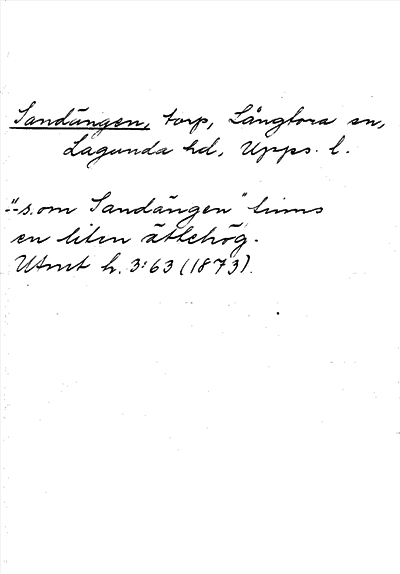 Sandängen, torp, Långtora sn,
Lagunda hd, Upps. l.
"-s.om Sandängen" finns
en liten ättehög.
Utmt h. 3:63 (1873).